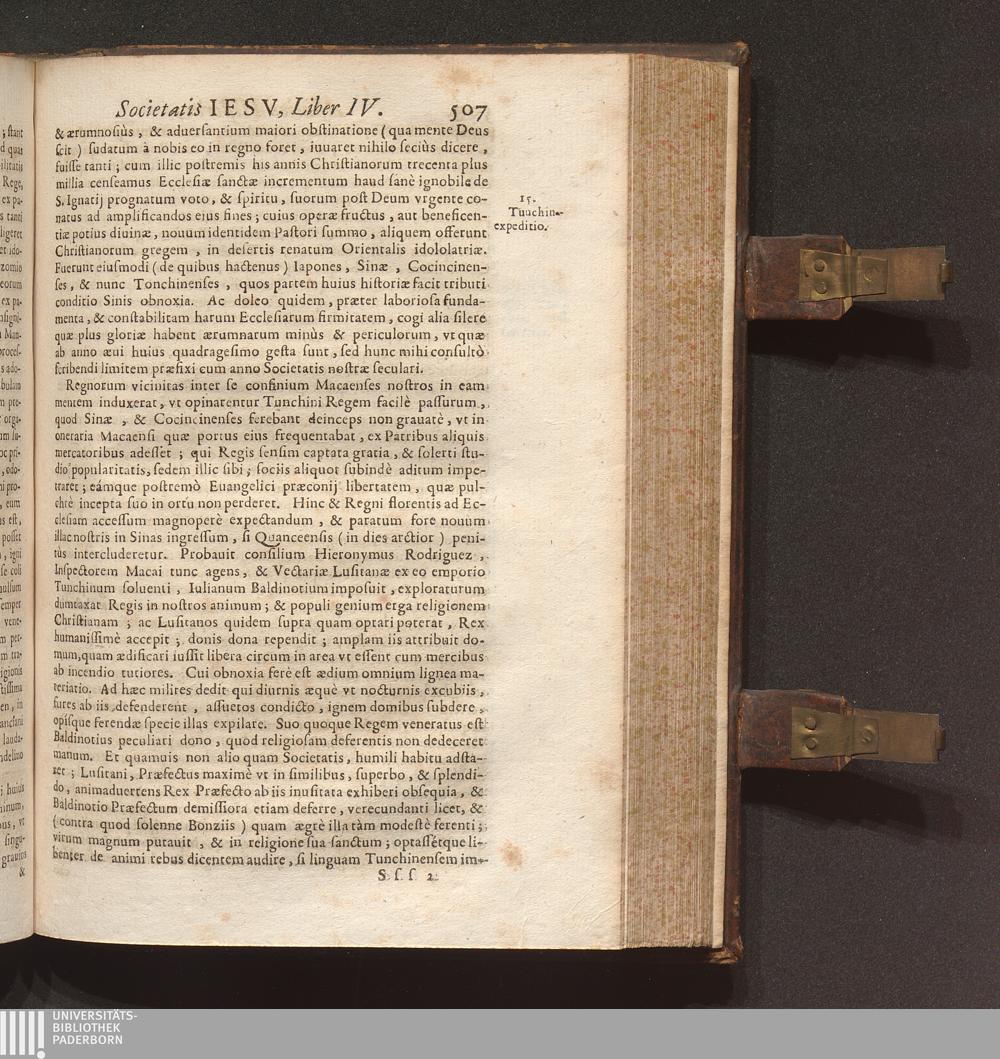 Societatis IESV, Liber IV. 507
& ærumnosiùs, & aduersantium maiori obstinatione (qua mente Deus
scit) sudatum à nobis eo in regno foret, iuuaret nihilo seciùs dicere,
fuisse tanti; cum illic postremis his annis Christianorum trecenta plus
millia censeamus Ecclesiæ sanctæ incrementum haud sanè ignobile de
S. Ignatij prognatum voto, & spiritu, suorum post Deum vrgente co-
natus ad amplificandos eius fines; cuius operæ fructus, aut beneficen-
tiæ potius diuinæ, nouum identidem Pastori summo, aliquem offerunt
Christianorum gregem, in desertis renatum Orientalis idololatriæ.
Fuerunt eiusmodi (de quibus hactenus) Iapones, Sinæ, Cocincinen-
ses, & nunc Tonchinenses, quos partem huius historiæ facit tributi
conditio Sinis obnoxia. Ac doleo quidem, præter laboriosa funda-
menta, & constabilitam harum Ecclesiarum firmitatem, cogi alia silere
quæ plus gloriæ habent ærumnarum minùs & periculorum, vt quæ
ab anno æui huius quadragesimo gesta sunt, sed hunc mihi consultò
scribendi limitem præfixi cum anno Societatis nostræ seculari.
15.
Tunchin-
expeditio.
Regnorum vicinitas inter se confinium Macaenses nostros in eam
mentem induxerat, vt opinarentur Tunchini Regem facilè passurum,
quod Sinæ, & Cocincinenses ferebant deinceps non grauatè, vt in
oneraria Macaensi quæ portus eius frequentabat, ex Patribus aliquis
mercatoribus adesset; qui Regis sensim captata gratia, & solerti stu-
dio popularitatis, sedem illic sibi; sociis aliquot subindè aditum impe-
traret; eámque postremò Euangelici præconij libertatem, quæ pul-
chrè incepta suo in ortu non perderet. Hinc & Regni florentis ad Ec-
clesiam accessum magnoperè expectandum, & paratum fore nouum
illac nostris in Sinas ingressum, si Quanceensis (in dies arctior) peni-
tùs intercluderetur. Probauit consilium Hieronymus Rodriguez,
Inspectorem Macai tunc agens, & Vectariæ Lusitanæ ex eo emporio
Tunchinum soluenti, Iulianum Baldinotium imposuit, exploraturum
dumtaxat Regis in nostros animum; & populi genium erga religionem
Christianam; ac Lusitanos quidem supra quam optari poterat, Rex
humanissimè accepit; donis dona rependit; amplam iis attribuit do-
mum, quam ædificari iussit libera circum in area vt essent cum mercibus
ab incendio tutiores. Cui obnoxia ferè est ædium omnium lignea ma-
teriatio. Ad hæc milites dedit qui diurnis æquè vt nocturnis excubiis,
fures ab iis defenderent, assuetos condicto, ignem domibus subdere,
opísque ferendæ specie illas expilare. Suo quoque Regem veneratus est
Baldinotius peculiari dono, quod religiosam deferentis non dedeceret
manum. Et quamuis non alio quam Societatis, humili habitu adsta-
ret; Lusitani, Præfectus maximè vt in similibus, superbo, & splendi-
do, animaduertens Rex Præfecto ab iis inusitata exhiberi obsequia, &
Baldinotio Præfectum demissiora etiam deferre, verecundanti licet, &
(contra quod solenne Bonziis) quam ægrè illa tàm modestè ferenti;
virum magnum putauit, & in religione sua sanctum; optassétque li-
benter de animi rebus dicentem audire, si linguam Tunchinensem im-
S s s 2
UNIVERSITÄTS-
BIBLIOTHEK
PADERBORN